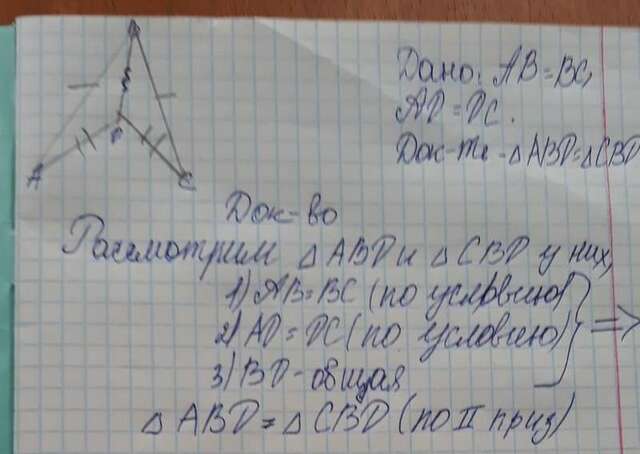 B
D
A
C
Дано: AB=BC,
AD=DC.
Док-те - △ABD=△CBD
Док-во
Рассмотрим △ABD и △CBD у них,
1) AB=BC (по условию)
2) AD=DC (по условию)
3) BD-общая
=>
△ABD=△CBD (по II приз)